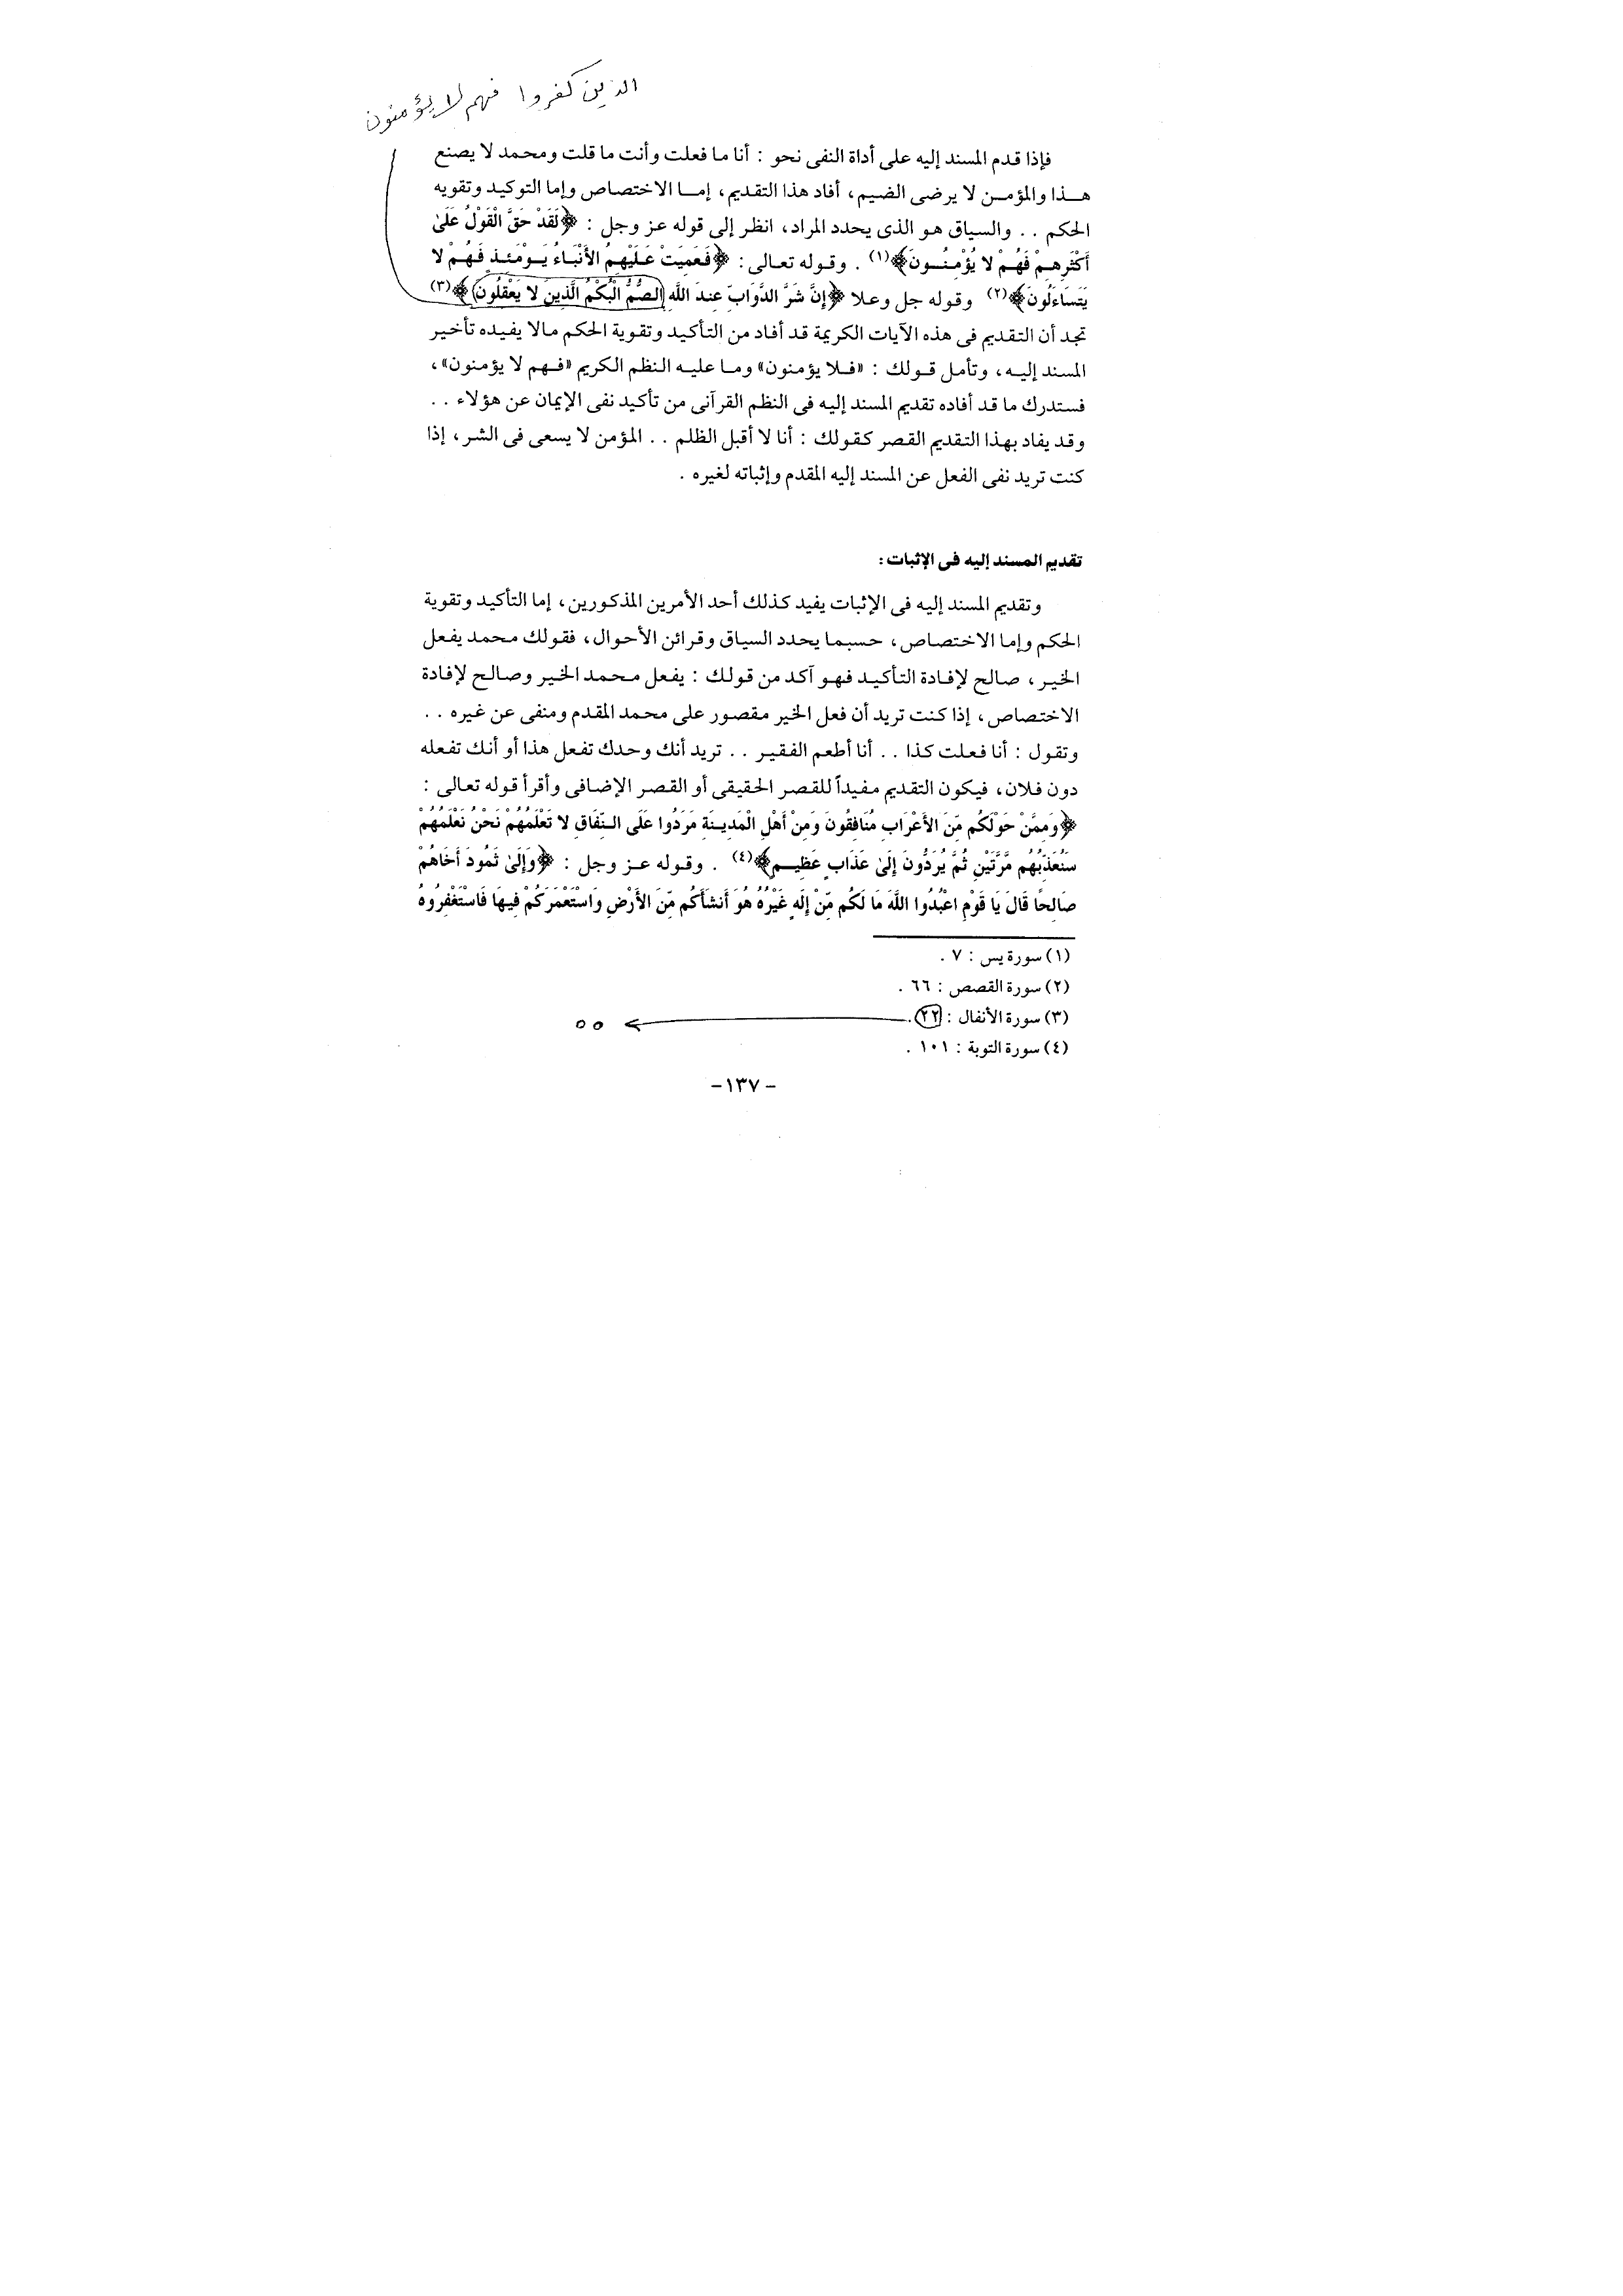 الذين كفروا فهم لا يؤمنون
فإذا قدم المسند إليه على أداة النفى نحو : أنا ما فعلت وأنت ما قلت ومحمد لا يصنع
هـذا والمؤمـن لا يرضى الضيم، أفاد هذا التقديم، إمـا الاختصاص وإما التوكيد وتقويه
الحكم . . والسياق هو الذى يحدد المراد، انظر إلى قوله عز وجل : ﴿لَقَدْ حَقَّ الْقَوْلُ عَلَىٰ
أَكْثَرِهِمْ فَهُمْ لا يُؤْمِنُونَ﴾(١) . وقوله تعالى : ﴿فَعَمِيَتْ عَلَيْهِمُ الأَنْبَاءُ يَوْمَئِذٍ فَهُمْ لا
يَتَسَاءَلُونَ﴾(٢) وقوله جل وعلا ﴿إِنَّ شَرَّ الدَّوَابِّ عِندَ اللَّهِ الصُّمُّ الْبُكْمُ الَّذِينَ لا يَعْقِلُونَ﴾(٣)
تجد أن التقديم فى هذه الآيات الكريمة قد أفاد من التأكيد وتقوية الحكم مالا يفيده تأخير
المسند إليه، وتأمل قولك : «فلا يؤمنون» وما عليه النظم الكريم «فهم لا يؤمنون»،
فستدرك ما قد أفاده تقديم المسند إليه فى النظم القرآنى من تأكيد نفى الإيمان عن هؤلاء . .
وقد يفاد بهذا التقديم القصر كقولك : أنا لا أقبل الظلم . . المؤمن لا يسعى فى الشر، إذا
كنت تريد نفى الفعل عن المسند إليه المقدم وإثباته لغيره .
تقديم المسند إليه فى الإثبات :
وتقديم المسند إليه فى الإثبات يفيد كذلك أحد الأمرين المذكورين، إما التأكيد وتقوية
الحكم وإما الاختصاص، حسبما يحدد السياق وقرائن الأحوال، فقولك محمد يفعل
الخير، صالح لإفادة التأكيد فهو آكد من قولك : يفعل محمد الخير وصالح لإفادة
الاختصاص، إذا كنت تريد أن فعل الخير مقصور على محمد المقدم ومنفى عن غيره . .
وتقول : أنا فعلت كذا . . أنا أطعم الفقير . . تريد أنك وحدك تفعل هذا أو أنك تفعله
دون فلان، فيكون التقديم مفيداً للقصر الحقيقى أو القصر الإضافى وأقرأ قوله تعالى :
﴿وَمِمَّنْ حَوْلَكُم مِّنَ الأَعْرَابِ مُنَافِقُونَ وَمِنْ أَهْلِ الْمَدِينَةِ مَرَدُوا عَلَى النِّفَاقِ لا تَعْلَمُهُمْ نَحْنُ نَعْلَمُهُمْ
سَنُعَذِّبُهُم مَّرَّتَيْنِ ثُمَّ يُرَدُّونَ إِلَىٰ عَذَابٍ عَظِيمٍ﴾(٤) . وقوله عز وجل : ﴿وَإِلَىٰ ثَمُودَ أَخَاهُمْ
صَالِحًا قَالَ يَا قَوْمِ اعْبُدُوا اللَّهَ مَا لَكُم مِّنْ إِلَهٍ غَيْرُهُ هُوَ أَنشَأَكُم مِّنَ الأَرْضِ وَاسْتَعْمَرَكُمْ فِيهَا فَاسْتَغْفِرُوهُ
(١) سورة يس : ٧ .
(٢) سورة القصص : ٦٦ .
(٣) سورة الأنفال : ٢٢ . ٥٥
(٤) سورة التوبة : ١٠١ .
-١٣٧-